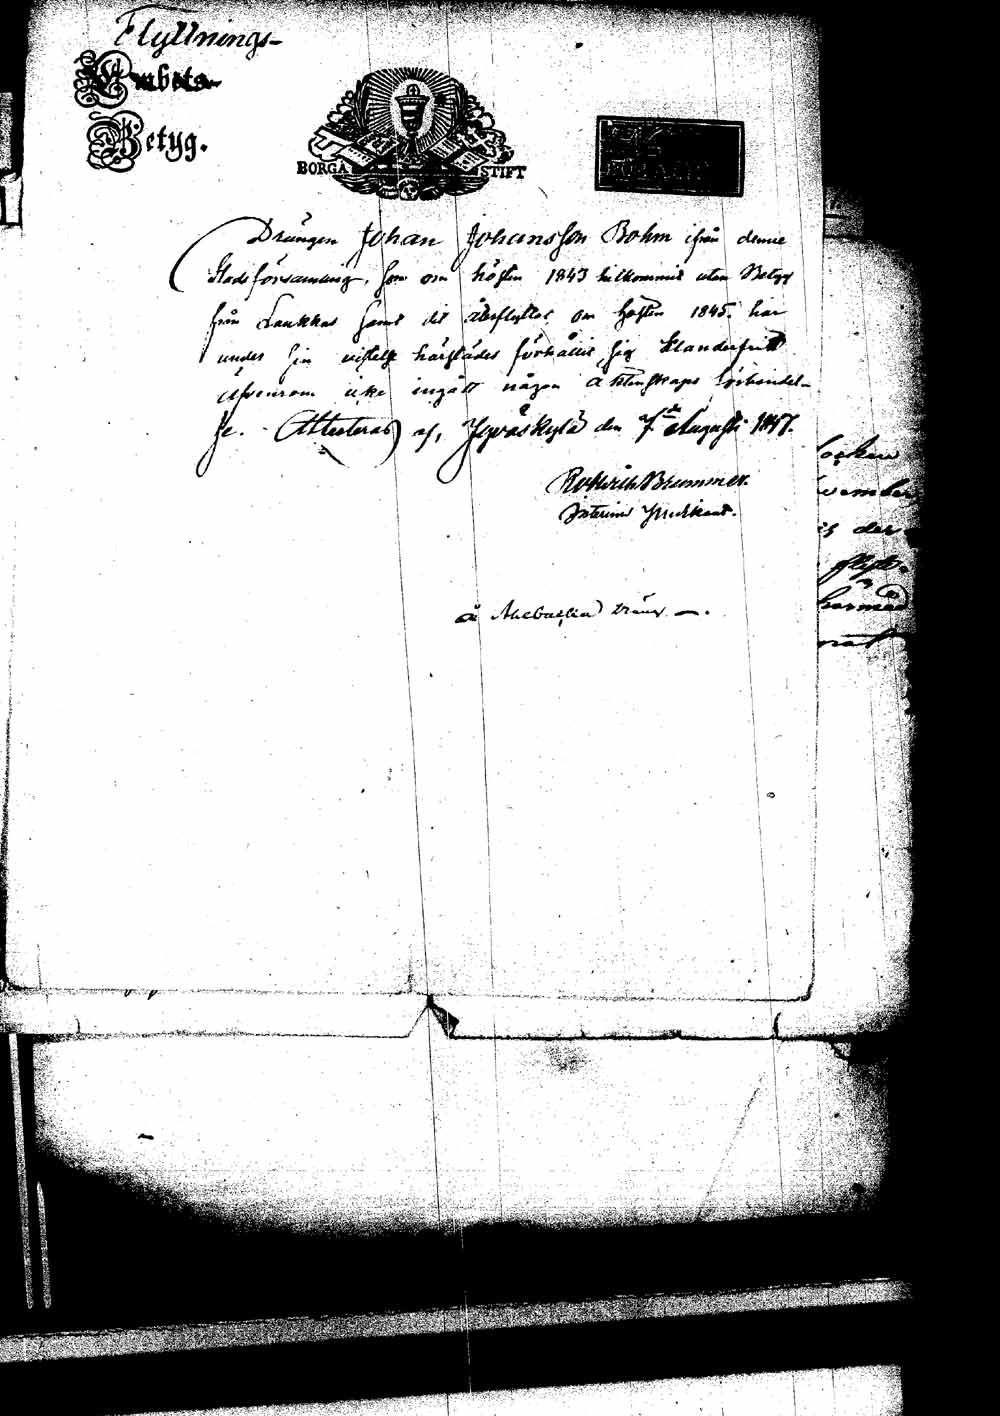 Flyttnings-
Embets-
Betyg.
BORGÅ STIFT
Drängen Johan Johansson Bohm ifrån denne
Stadsförsamling, som om hösten 1843 tillkommit utan Betyg
från Laukkas samt dit återflyttat om hösten 1845. har
under sin vistelse härstädes förhållit sig klanderfritt
äfvensom icke ingått någon äktenskaps förbindel-
se. Attesteras af, Jyväskylä den 7de Augusti 1847.
Brummer.
Interims Predikant.
locken
vember
is der
flytt-
härmed